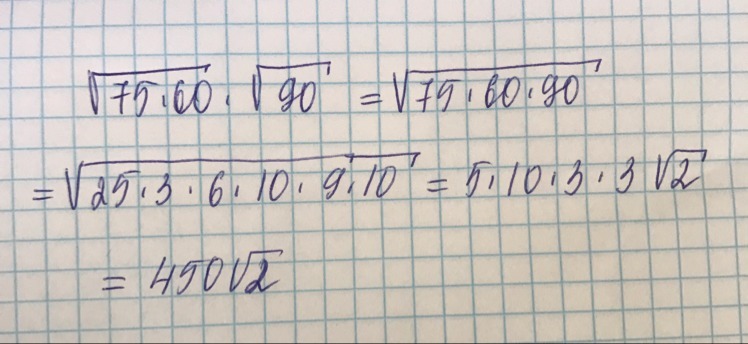 √75·60 · √90 = √75·60·90
= √25·3·6·10·9·10 = 5·10·3·3√2
= 450√2